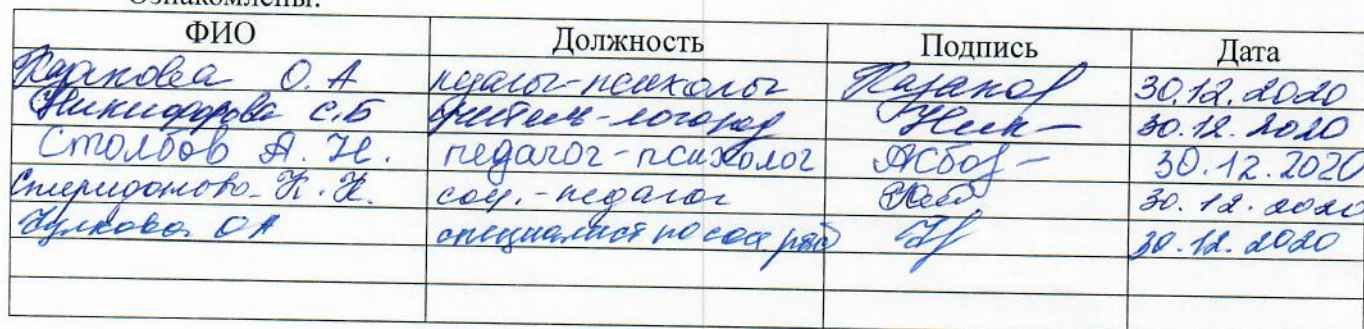 Ознакомлены:
ФИО Должность Подпись Дата
Казанова О. А педагог-психолог Казанов 30.12.2020
Никифорова С.Б учитель-логопед Ник 30.12.2020
Столбов А. Н. педагог-психолог 30.12.2020
Спиридонова К. К. соц.-педагог 30.12.2020
Чулкова ОА специалист по соц раб 30.12.2020